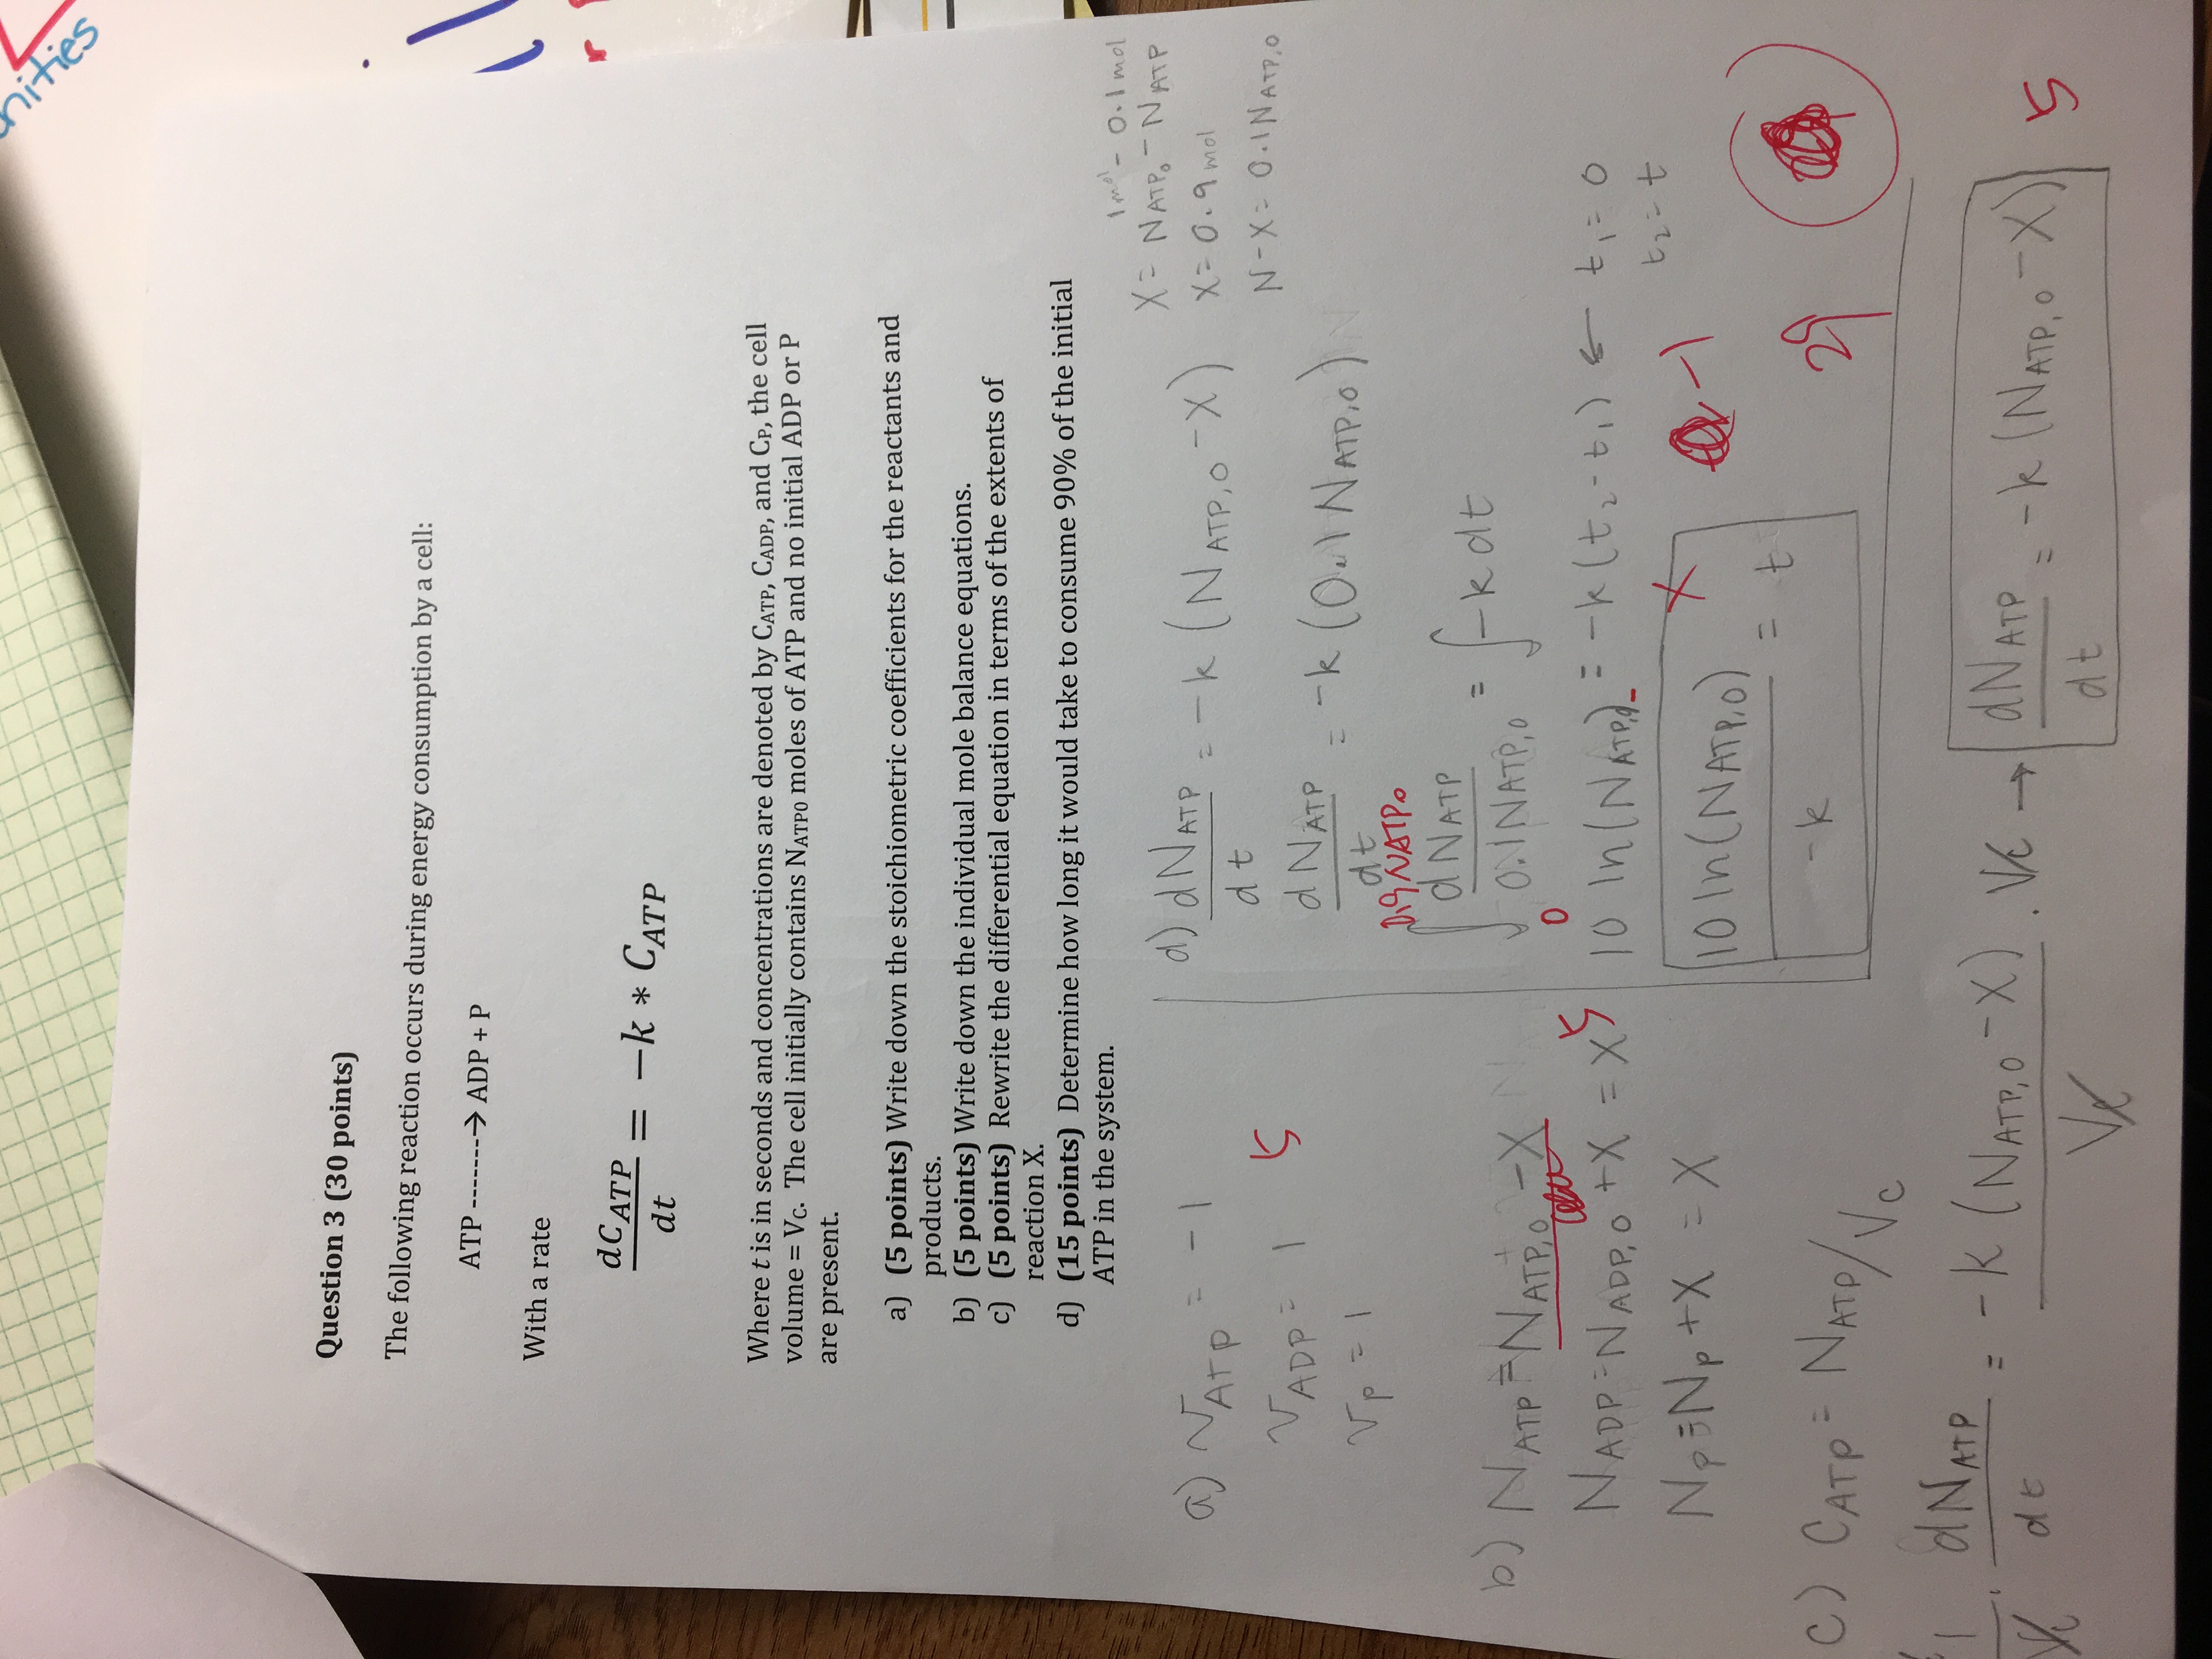 nities
Question 3 (30 points)
The following reaction occurs during energy consumption by a cell:
ATP -------→ ADP + P
With a rate
dC_ATP/dt = −k * C_ATP
Where t is in seconds and concentrations are denoted by C_ATP, C_ADP, and C_P, the cell
volume = V_C. The cell initially contains N_ATP0 moles of ATP and no initial ADP or P
are present.
a) (5 points) Write down the stoichiometric coefficients for the reactants and
products.
b) (5 points) Write down the individual mole balance equations.
c) (5 points) Rewrite the differential equation in terms of the extents of
reaction X.
d) (15 points) Determine how long it would take to consume 90% of the initial
ATP in the system.
a) ν_ATP = -1
ν_ADP = 1
5
ν_P = 1
b) N_ATP = N_ATP,0 - X
N_ADP = N_ADP,0 + X = X
5
N_P = N_P + X = X
c) C_ATP = N_ATP/V_C
1/V_C · dN_ATP/dt = -k (N_ATP,0 - X)/V_C · V_C → dN_ATP/dt = -k (N_ATP,0 - X)
5
d) dN_ATP/dt = -k (N_ATP,0 - X)
1 mol - 0.1 mol
X = N_ATP0 - N_ATP
X = 0.9 mol
N - X = 0.1 N_ATP,0
dN_ATP/dt = -k (0.1 N_ATP,0)
0.9 NATP0
∫ dN_ATP/0.1N_ATP,0 = ∫ -k dt
0
10 ln(N_ATP,0) = -k(t2 - t1) ← t1 = 0
t2 = t
10 ln(N_ATP,0)/-k = t
X
-1
29